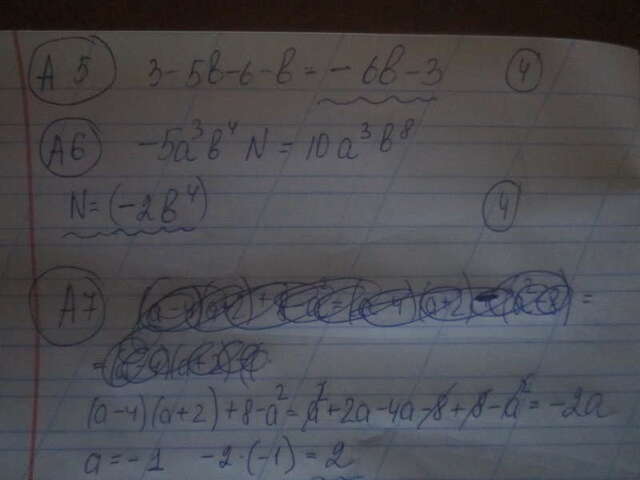 A5 3-5b-6-b=-6b-3 4
A6 -5a³b⁴N=10a³b⁸
N=(-2b⁴) 4
A7
(a-4)(a+2)+8-a²=a²+2a-4a-8+8-a²=-2a
a=-1 -2·(-1)=2